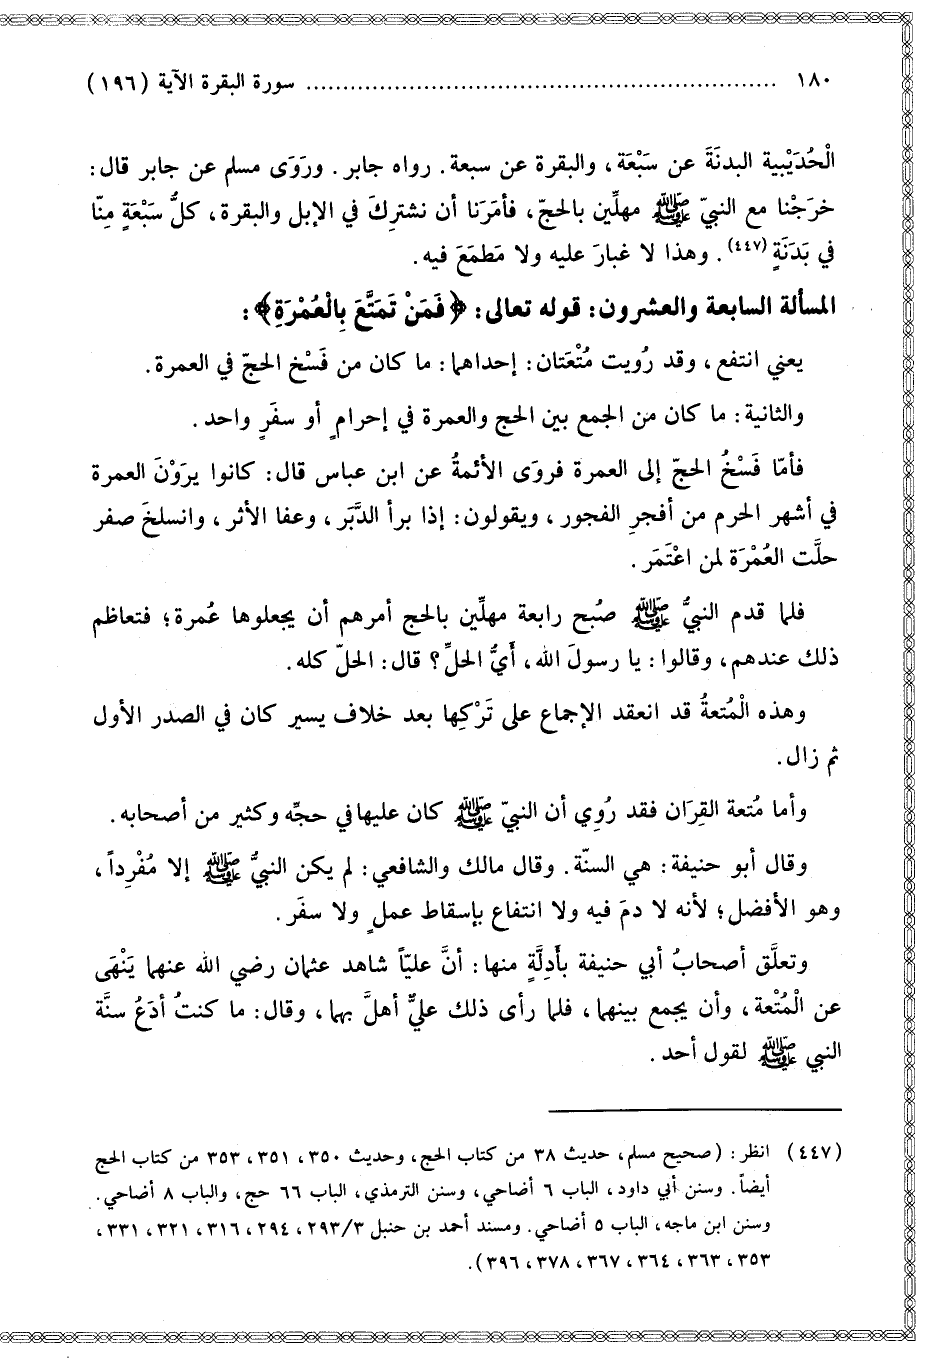 ١٨٠ ................................................................ سورة البقرة الآية (١٩٦)
الْحُدَيْبية البدنَةَ عن سَبْعَة، والبقرة عن سبعة. رواه جابر. ورَوَى مسلم عن جابر قال:
خرَجْنا مع النبيّ ﷺ مهلِّين بالحجّ، فأمَرَنا أن نشترِكَ في الإبل والبقرة، كلُّ سَبْعَةٍ مِنّا
في بَدَنَةٍ (٤٤٧). وهذا لا غبارَ عليه ولا مَطمَعَ فيه.
المسألة السابعة والعشرون: قوله تعالى: ﴿فَمَنْ تَمَتَّعَ بِالْعُمْرَةِ﴾:
يعني انتفع، وقد رُويت مُتْعَتان: إحداهما: ما كان من فَسْخ الحجّ في العمرة.
والثانية: ما كان من الجمع بين الحج والعمرة في إحرامٍ أو سفَرٍ واحد.
فأمّا فَسْخُ الحجّ إلى العمرة فروَى الأئمةُ عن ابن عباس قال: كانوا يرَوْنَ العمرة
في أشهر الحرم من أفجرِ الفجور، ويقولون: إذا برأ الدَّبَر، وعفا الأثر، وانسلخَ صفر
حلَّت العُمْرَة لمن اعْتَمَر.
فلما قدم النبيُّ ﷺ صُبح رابعة مهلِّين بالحج أمرهم أن يجعلوها عُمرة؛ فتعاظم
ذلك عندهم، وقالوا: يا رسولَ الله، أَيُّ الحلِّ؟ قال: الحلّ كله.
وهذه الْمُتعةُ قد انعقد الإجماع على تَرْكِها بعد خلاف يسير كان في الصدر الأول
ثم زال.
وأما مُتعة القِرَان فقد رُوِي أن النبيّ ﷺ كان عليها في حجِّه وكثير من أصحابه.
وقال أبو حنيفة: هي السنّة. وقال مالك والشافعي: لم يكن النبيُّ ﷺ إلا مُفْرِداً،
وهو الأفضل؛ لأنه لا دمَ فيه ولا انتفاع بإسقاط عملٍ ولا سفَر.
وتعلَّق أصحابُ أبي حنيفة بأَدِلَّةٍ منها: أنَّ عليّاً شاهد عثمان رضي الله عنهما يَنْهَى
عن الْمُتْعة، وأن يجمع بينهما، فلما رأى ذلك عليٌّ أهلَّ بهما، وقال: ما كنتُ أدَعُ سنَّة
النبي ﷺ لقول أحد.
(٤٤٧) انظر: (صحيح مسلم، حديث ٣٨ من كتاب الحج، وحديث ٣٥٠، ٣٥١، ٣٥٣ من كتاب الحج
أيضاً. وسنن أبي داود، الباب ٦ أضاحي، وسنن الترمذي، الباب ٦٦ حج، والباب ٨ أضاحي.
وسنن ابن ماجه، الباب ٥ أضاحي. ومسند أحمد بن حنبل ٢٩٣/٣، ٢٩٤، ٣١٦، ٣٢١، ٣٣١،
٣٥٣، ٣٦٣، ٣٦٤، ٣٦٧، ٣٧٨، ٣٩٦).